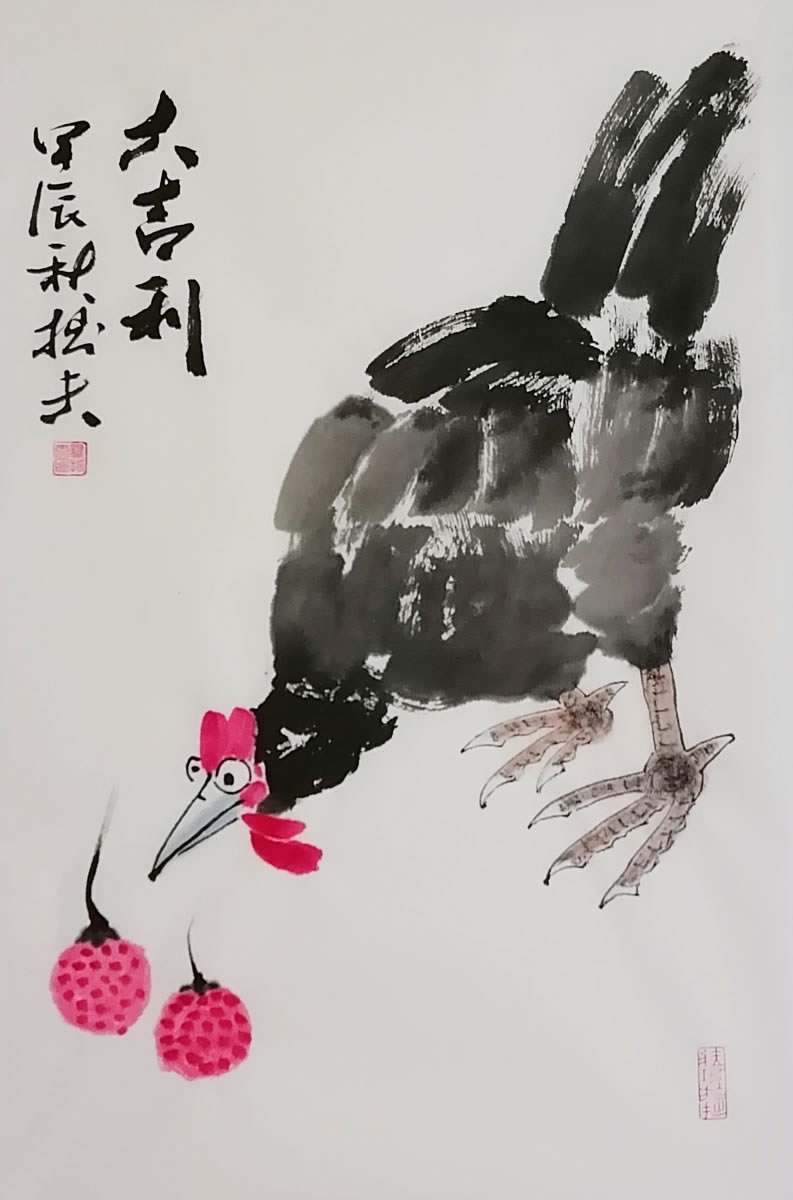 大吉利
甲辰秋拙夫